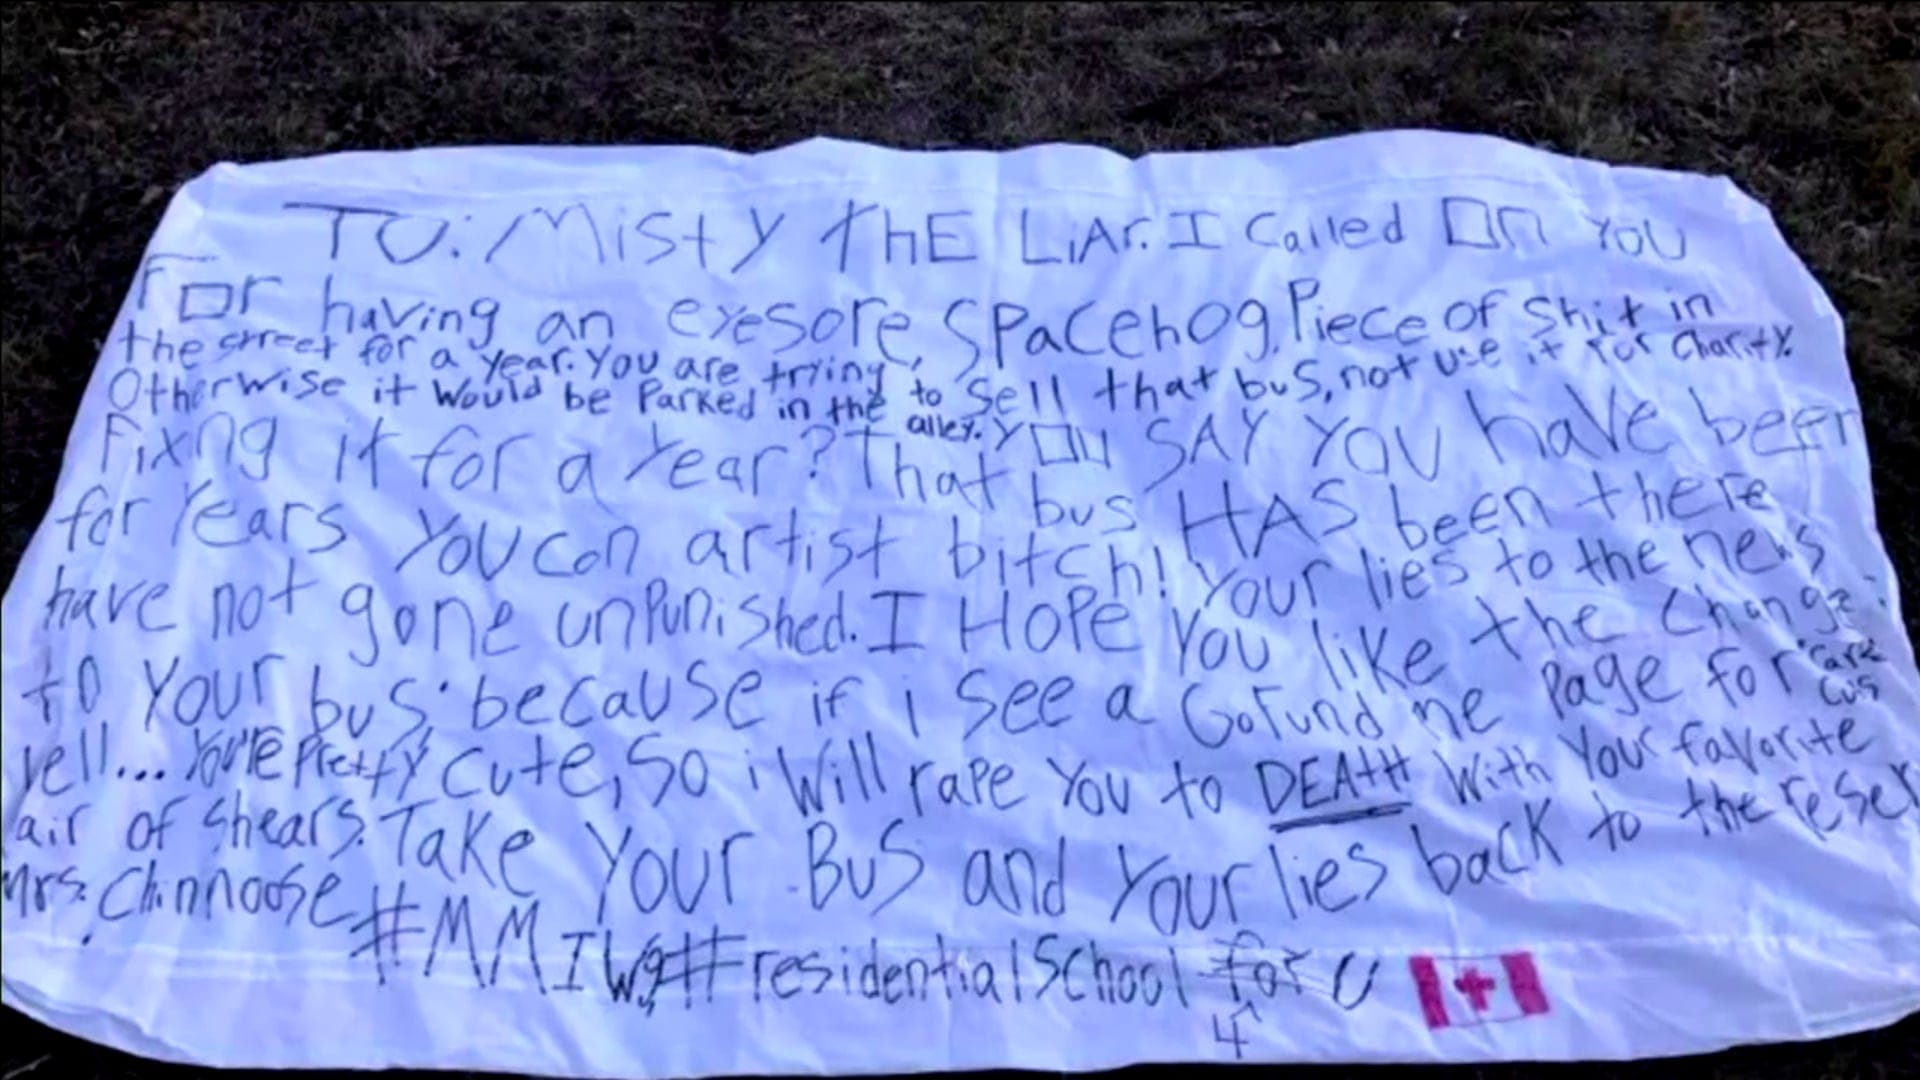 TO: Misty ThE LiAr. I Called On YOU
For having an eyesore, SPacehog, Piece of Shit in
the street for a year. You are trying to Sell that bus, not use it for Charity.
Otherwise it would be Parked in the alley. YOU SAY YOU have been
Fixng it for a year? That bus HAS been there
for Years YOU con artist bitch! Your lies to the news
have not gone unPunished. I HOPE You like the Change
to Your bus because if i see a GoFund me Page for
rell... You're Pretty cute, So i Will rape You to DEATH With Your favorite
air of Shears. Take Your Bus and Your lies back to the reser
Mrs. Chinnoose #MMIWg #residentialSchool for U
4